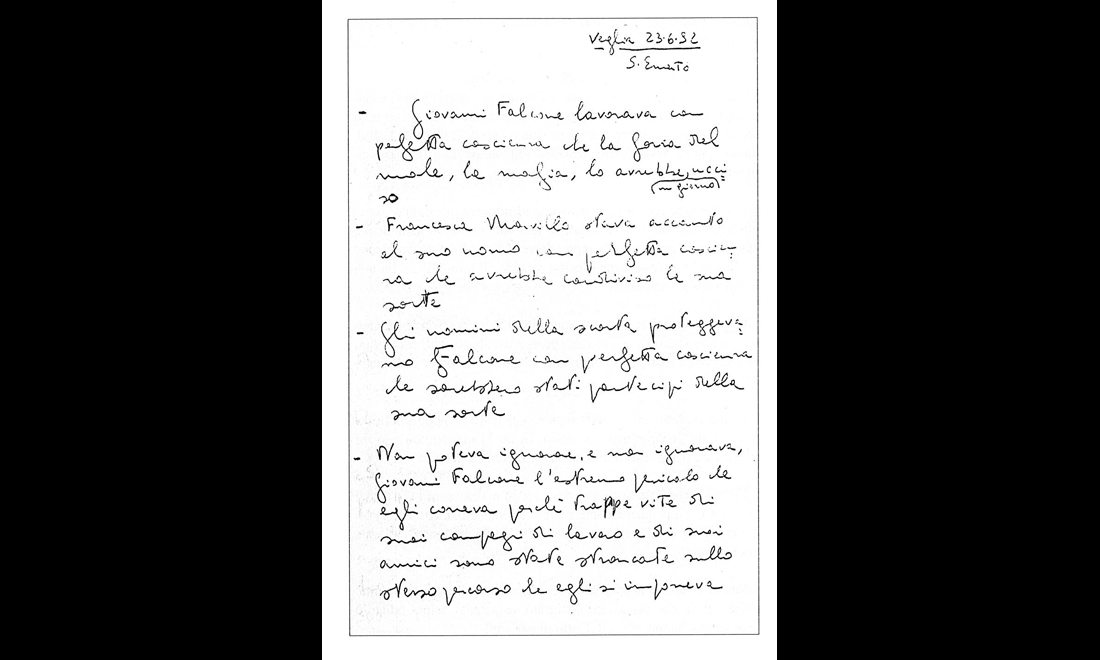 Veglia 23.6.92
S. Ernesto
- Giovanni Falcone lavorava con
perfetta coscienza che la forza del
male, la mafia, lo avrebbe, ucci
(un giorno)
so
- Francesca Morvillo stava accanto
al suo uomo con perfetta coscien
za che avrebbe condiviso la sua
sorte
- Gli uomini della scorta proteggeva
no Falcone con perfetta coscienza
che sarebbero stati partecipi della
sua sorte
- Non poteva ignorare, e non ignorava,
Giovanni Falcone l'estremo pericolo che
egli correva perché troppe vite di
suoi compagni di lavoro e di suoi
amici sono state stroncate sullo
stesso percorso che egli si imponeva